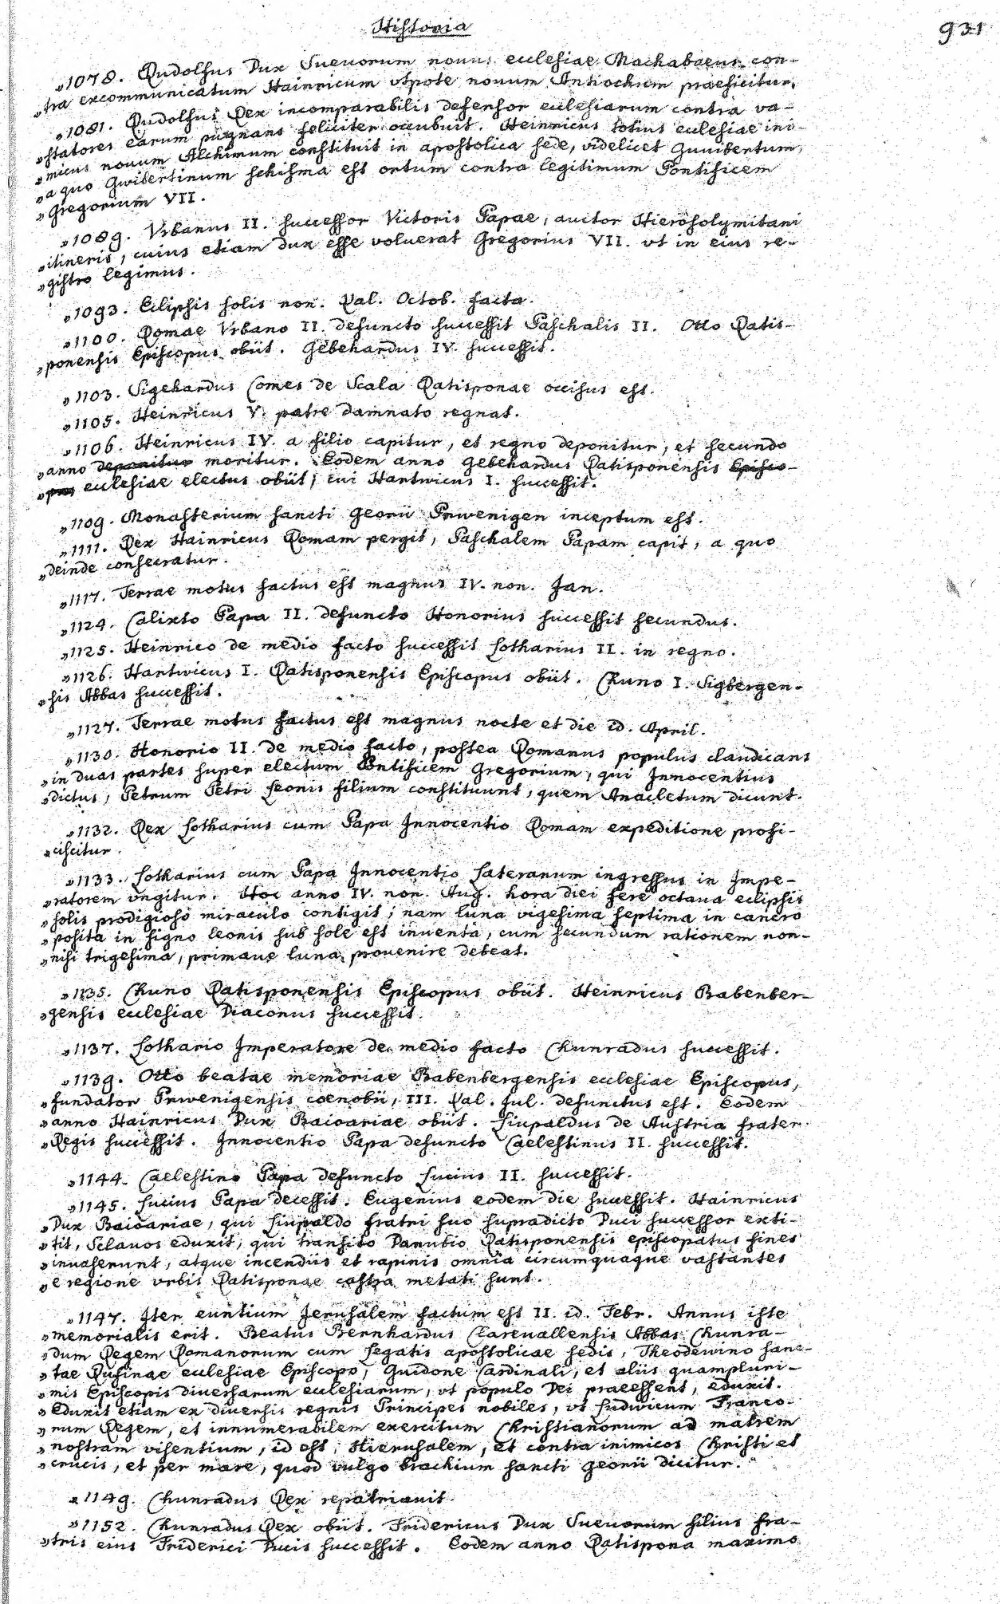 Historia
931
„1078. Rudolfus Dux Sueuorum nouus ecclesiae Machabaeus con-
„tra excommunicatum Hainricum utpote nouum Antiochum praeficitur.
„1081. Rudolfus Rex incomparabilis defensor ecclesiarum contra va-
„statores earum pugnans feliciter occubuit. Heinricus totius ecclesiae ini-
„micus nouum Alchimum constituit in apostolica sede, videlicet Guuibertum,
„a quo Gwibertinum schisma est ortum contra legitimum Pontificem
„Gregorium VII.
„1089. Vrbanus II. successor Victoris Papae, auctor Hierosolymitani
„itineris, cuius etiam dux esse voluerat Gregorius VII. vt in eius re-
„gistro legimus.
„1093. Eclipsis solis non. Kal. Octob. facta.
„1100. Romae Vrbano II. defuncto successit Paschalis II. Otto Ratis-
„ponensis Episcopus obiit. Gebehardus IV. successit.
„1103. Sigehardus Comes de Scala Ratisponae occisus est.
„1105. Heinricus V. patre damnato regnat.
„1106. Heinricus IV. a filio capitur, et regno deponitur, et secundo
„anno deponitur moritur. Eodem anno Gebehardus Ratisponensis Episco-
„pus ecclesiae electus obiit, cui Hartwicus I. successit.
„1109. Monasterium sancti Georii Priwenigen inceptum est.
„1111. Rex Hainricus Romam pergit, Paschalem Papam capit, a quo
„deinde consecratur.
„1117. Terrae motus factus est magnus IV. non. Jan.
„1124. Calixto Papa II. defuncto Honorius successit secundus.
„1125. Heinrico de medio facto successit Lotharius II. in regno.
„1126. Hartwicus I. Ratisponensis Episcopus obiit. Chuno I. Sigbergen-
„sis Abbas successit.
„1127. Terrae motus factus est magnus nocte et die id. April.
„1130. Honorio II. de medio facto, postea Romanus populus claudicans
„in duas partes super electum Pontificem Gregorium, qui Innocentius
„dictus, Petrum Petri Leonis filium constituunt, quem Anacletum dicunt.
„1132. Rex Lotharius cum Papa Innocentio Romam expeditione profi-
„ciscitur.
„1133. Lotharius cum Papa Innocentio Lateranum ingressus in Impe-
„ratorem vngitur. Hoc anno IV. non. Aug. hora diei fere octaua eclipsis
„solis prodigioso miraculo contigit; nam luna vigesima septima in cancro
„posita in signo leonis sub sole est inuenta, cum secundum rationem non-
„nisi trigesima, primaue luna prouenire debeat.
„1135. Chuno Ratisponensis Episcopus obiit. Heinricus Babenber-
„gensis ecclesiae Diaconus successit.
„1137. Lothario Imperatore de medio facto Chunradus successit.
„1139. Otto beatae memoriae Babenbergensis ecclesiae Episcopus,
„fundator Priwenigensis coenobii, III. Kal. Jul. defunctus est. Eodem
„anno Hainricus Dux Baioariae obiit. Liupaldus de Austria frater
„Regis successit. Innocentio Papa defuncto Caelestinus II. successit.
„1144. Caelestino Papa defuncto Lucius II. successit.
„1145. Lucius Papa decessit. Eugenius eodem die successit. Hainricus
„Dux Baioariae, qui Liupaldo fratri suo supradicto Duci successor exti-
„tit, Sclauos eduxit, qui transito Danubio Ratisponensis episcopatus fines
„inuaserunt, atque incendiis et rapinis omnia circumquaque vastantes
„e regione vrbis Ratisponae castra metati sunt.
„1147. Iter euntium Jerusalem factum est II. id. Febr. Annus iste
„memorialis erit. Beatus Bernhardus Clareuallensis Abbas Chunra-
„dum Regem Romanorum cum Legatis apostolicae sedis, Theodewino sanc-
„tae Rufinae ecclesiae Episcopo, Guidone Cardinali, et aliis quampluri-
„mis Episcopis diuersarum ecclesiarum, vt populo Dei praeessent, eduxit.
„Eduxit etiam ex diuersis regnis Principes nobiles, vt Ludwicum Franco-
„rum Regem, et innumerabilem exercitum Christianorum ad matrem
„nostram visentium, id est, Hierusalem, et contra inimicos Christi et
„crucis, et per mare, quod vulgo brachium sancti Georii dicitur.
„1149. Chunradus Rex repatriauit.
„1152. Chunradus Rex obiit. Fridericus Dux Sueuorum filius fra-
„tris eius Friderici Ducis successit. Eodem anno Ratispona maximo